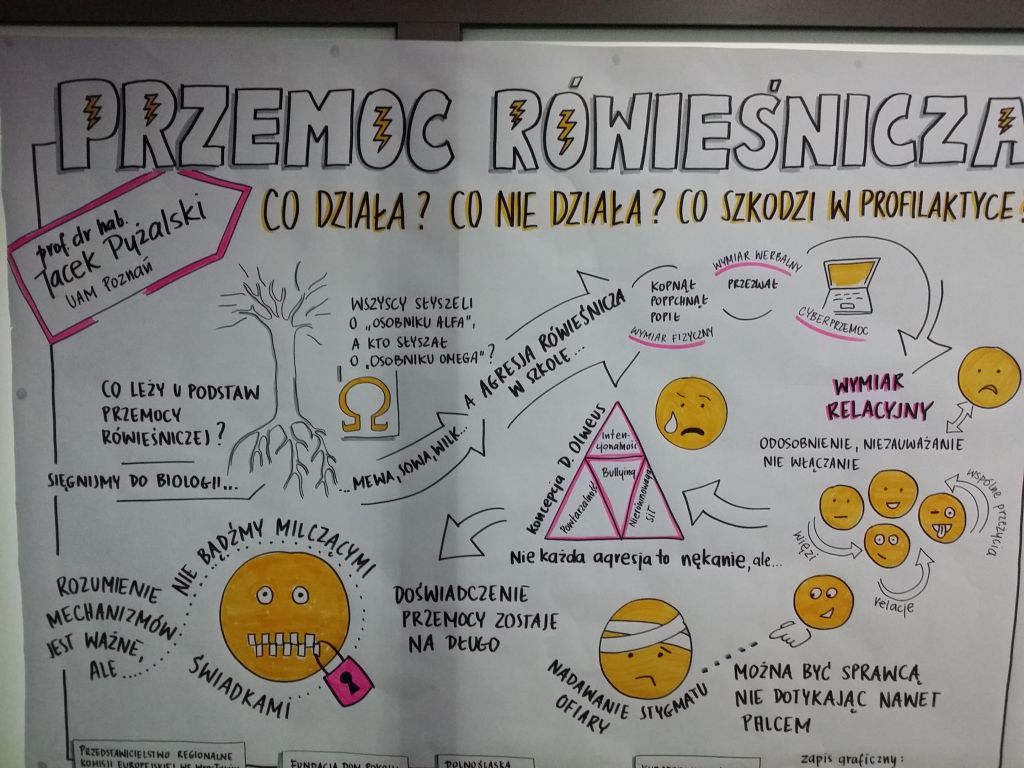 PRZEMOC RÓWIEŚNICZA
CO DZIAŁA? CO NIE DZIAŁA? CO SZKODZI W PROFILAKTYCE
prof. dr hab.
Jacek Pyżalski
UAM Poznań
CO LEŻY U PODSTAW
PRZEMOCY
RÓWIEŚNICZEJ?
SIĘGNIJMY DO BIOLOGII...
WSZYSCY SŁYSZELI
O „OSOBNIKU ALFA",
A KTO SŁYSZAŁ
O „OSOBNIKU OMEGA"?
Ω
...MEWA, SOWA, WILK...
A AGRESJA RÓWIEŚNICZA
W SZKOLE...
KOPNĄŁ
POPPCHNĄŁ
POBIŁ
WYMIAR FIZYCZNY
WYMIAR WERBALNY
PRZEZWAŁ
CYBERPRZEMOC
WYMIAR
RELACYJNY
ODOSOBNIENIE, NIEZAUWAŻANIE
NIE WŁĄCZANIE
więzi
wspólne przeżycia
relacje
MOŻNA BYĆ SPRAWCĄ
NIE DOTYKAJĄC NAWET
PALCEM
NADAWANIE STYGMATU
OFIARY
Koncepcja D. Olweus
Inten-
cjonalność
Bullying
Powtarzalność
Nierównowaga
SIŁ
Nie każda agresja to nękanie, ale...
DOŚWIADCZENIE
PRZEMOCY ZOSTAJE
NA DŁUGO
ROZUMIENIE
MECHANIZMÓW
JEST WAŻNE,
ALE...
NIE BĄDŹMY MILCZĄCYMI
ŚWIADKAMI
PRZEDSTAWICIELSTWO REGIONALNE
KOMISJI EUROPEJSKIEJ WE WROCŁAWIU
FUNDACJA DOM POKOJU
DOLNOŚLĄSKA
zapis graficzny: